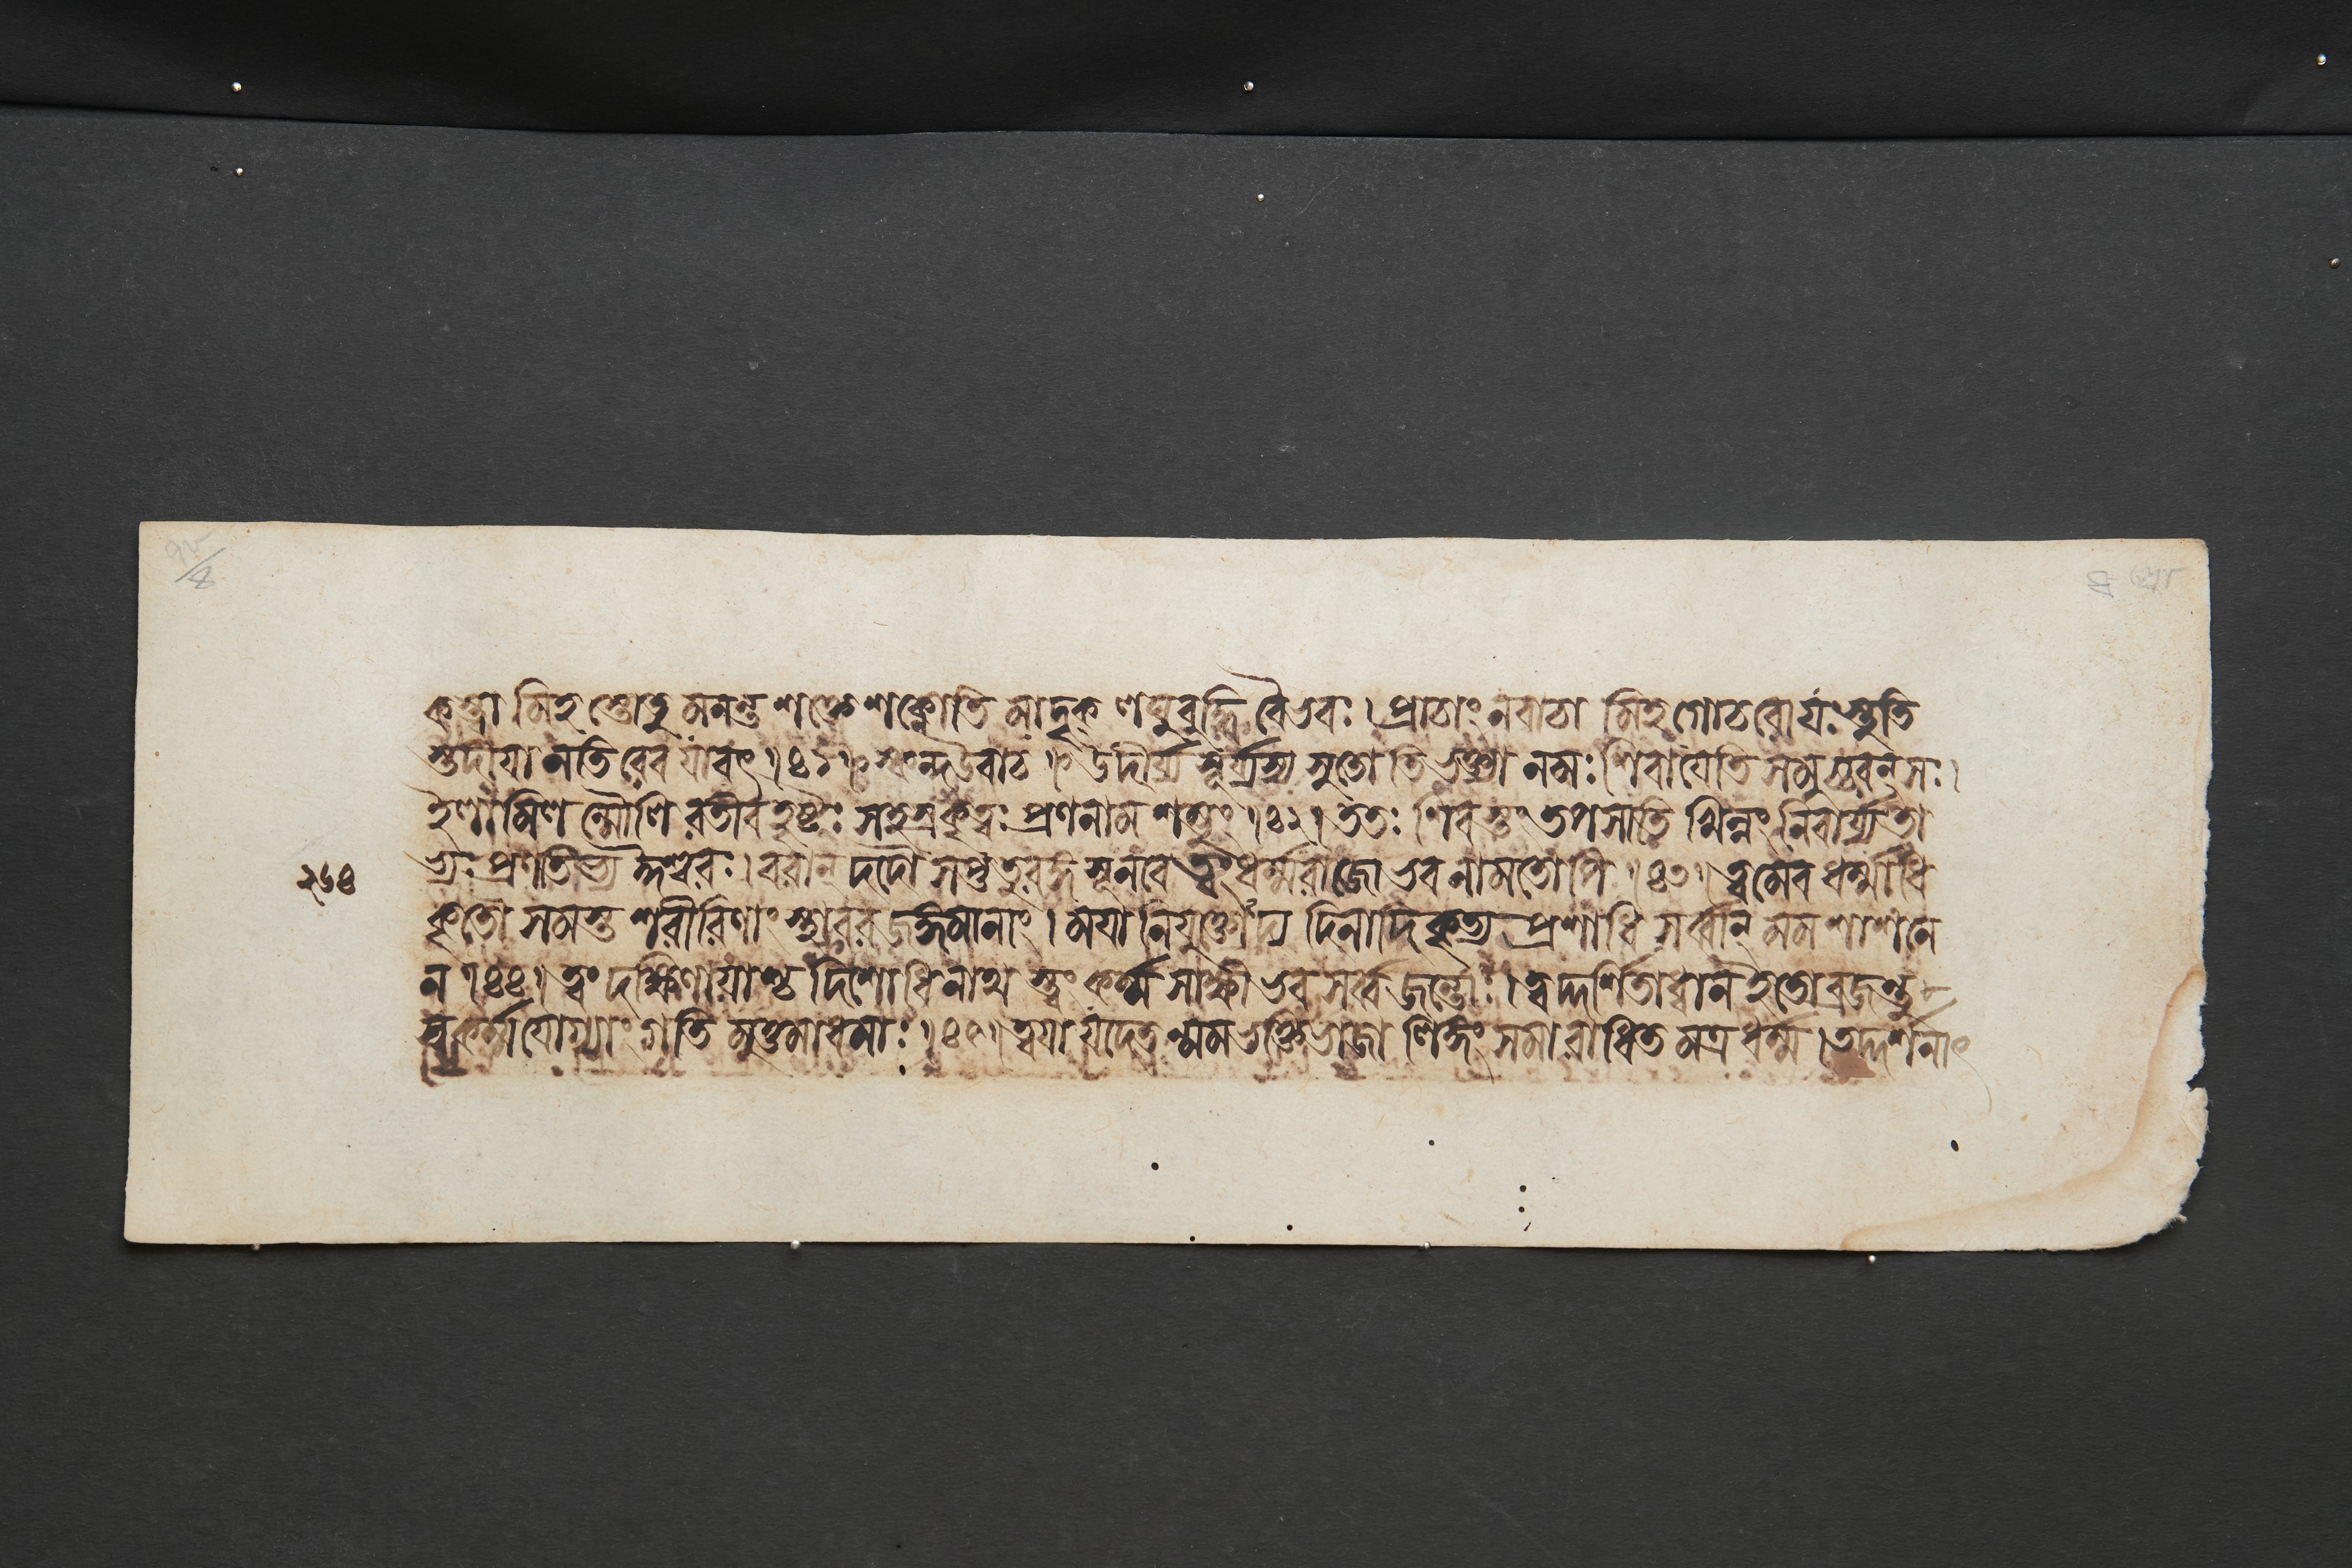 কস্ত্বামিহ স্তোতুমনন্তশক্তে শক্নোতি মাদৃক্ লঘুবুদ্ধিবৈভবঃ । প্রাচাং ন বাচামিহ গোচরো যঃ স্তুতি
স্তদীয়া নতিরেব যাবৎ ॥ ৪১ ॥ স্কন্দ উবাচ ॥ উদীর্য্য সূর্য্যস্য সুতোতিভক্ত্যা নমঃ শিবায়েতি সমুচ্চরন্ সঃ ।
ইলামিলন্মৌলিরতীব হৃষ্টঃ সহস্রকৃত্বঃ প্রণনাম শম্ভুং । ৪২ । ততঃ শিবস্তং তপসাতিখিন্নং নিবার্য্য তা
ভ্যঃ প্রণতিভ্য ঈশ্বরঃ । বরান্ দদৌ সপ্ততুরঙ্গসূনবে ত্বং ধর্ম্মরাজো ভব নামতোপি । ৪৩ । ত্বমেব ধর্ম্মাধি
২৬৪
কৃতৌ সমস্তশরীরিণাং স্থাবরজঙ্গমানাং । ময়া নিযুক্তোদ্য দিনাদিকৃত্য প্রশাধি সর্ব্বান্ মম শাশনে
ন । ৪৪ । ত্বং দক্ষিণায়াশ্চ দিশোধিনাথ স্ত্বং কর্ম্মসাক্ষী ভব সর্ব্বজন্তোঃ । ত্বদ্দর্শিতাধ্বান ইতো ব্রজন্তু
স্বকর্ম্মযোগ্যাং গতিমুত্তমাধমাঃ । ৪৫ । ত্বয়া যদেতন্মমভক্তিভাজা লিঙ্গং সমারাধিতমত্র ধর্ম্ম । তদ্দর্শনাৎ